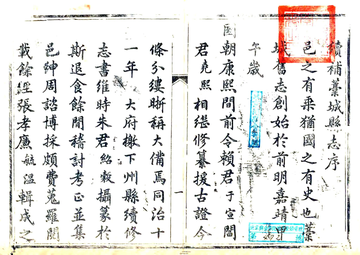 續補藁城縣志序
邑之有乘猶國之有史也藁
城舊志創始於前明嘉靖甲
午歲
國朝康熙間前令賴君于宣閻
君堯熙相繼修纂援古證今
條分縷晰稱大備焉同治十
一年大府檄下州縣續修
志書維時朱君紹穀攝篆於
斯退食餘閒稽討考正並集
邑紳周諮博採頗費蒐羅閱
載餘經張孝廉毓溫輯成之
一